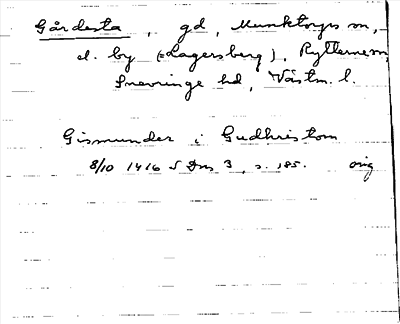 Gårdesta, gd, Munktorps sn,
d. by (=Lagersberg), Rytterne sn
Snevringe hd, Västm. l.
Gismunder i Gudhristom
8/10 1416 SDns 3, s. 185. orig